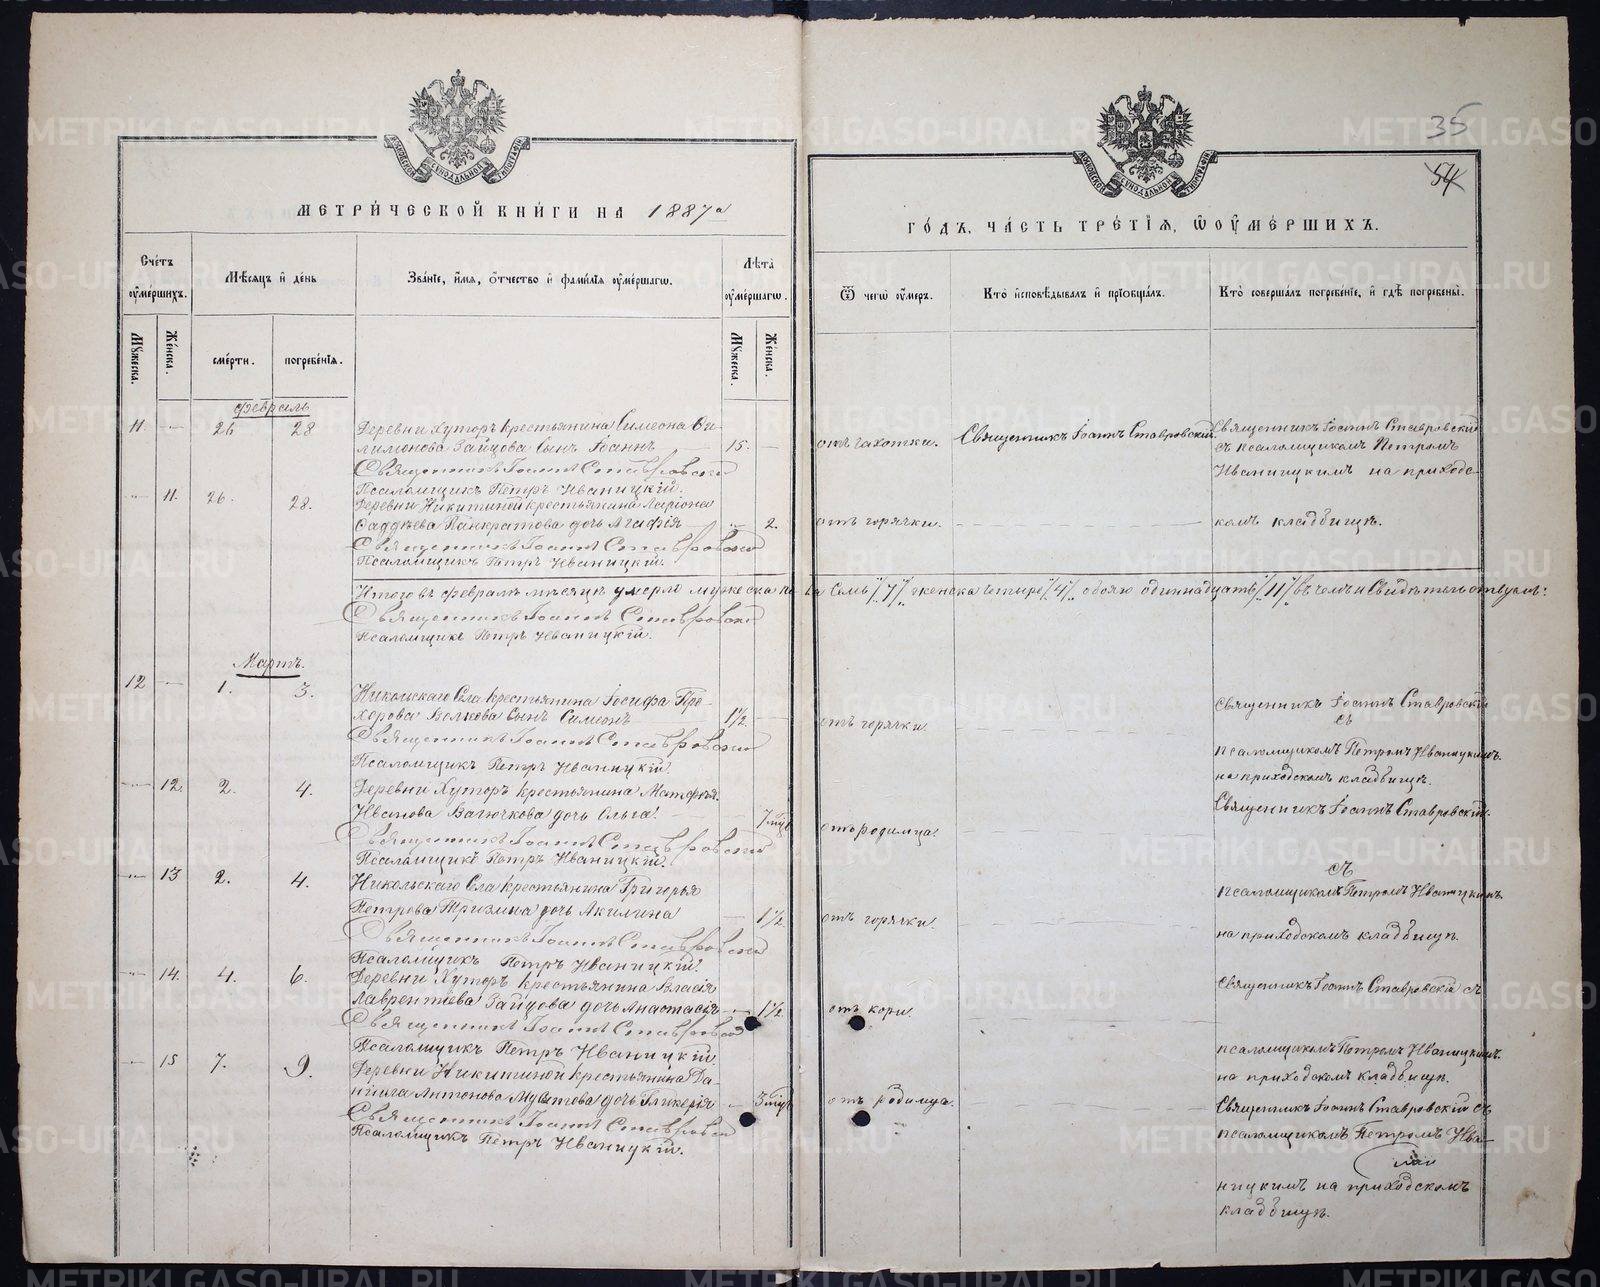 35
54
МЕТРИЧЕСКОЙ КНИГИ НА 1887й
ГОДЪ, ЧАСТЬ ТРЕТІЯ, Ѡ ОУМЕРШИХЪ.
Счетъ оумершихъ.
Мѣсяцъ и день
Званіе, имя, отчество и фамилія оумершагѡ.
Лѣта оумершагѡ.
Ѿ чегѡ оумеръ.
Кто исповѣдывалъ и пріобщалъ.
Кто совершалъ погребеніе, и гдѣ погребены.
Мужеска.
Женска.
смерти.
погребенія.
Мужеска.
Женска.
Февраль
11. — 26 28 Деревни Хуторъ крестьянина Симеона Фи-
лимонова Зайцова сынъ Іоаннъ 15. — отъ чахотки. Священникъ Іоаннъ Ставровскій. Священникъ Іоаннъ Ставровскій
Священникъ Іоаннъ Ставровскій съ псаломщикомъ Петромъ
Псаломщикъ Петръ Иваницкій. Иваницкимъ на приходс-
— 11. 26. 28. Деревни Никитиной крестьянина Ларіона
Фаддѣева Панкратова дочь Агафія — 2. отъ горячки. комъ кладбищѣ.
Священникъ Іоаннъ Ставровскій
Псаломщикъ Петръ Иваницкій.
Итого въ февралѣ мѣсяцѣ умерло мужеска по ла семь /7/, женска четыре /4/, обоего одиннадцать /11/ въ чемъ и свидѣтельствуемъ:
Священникъ Іоаннъ Ставровскій
Псаломщикъ Петръ Иваницкій.
Мартъ.
12 — 1. 3. Никольскаго Села крестьянина Іосифа Про-
хорова Волкова сынъ Симеонъ 1½. — отъ горячки. Священникъ Іоаннъ Ставровскій
съ
Священникъ Іоаннъ Ставровскій псаломщикомъ Петромъ Иваницкимъ
Псаломщикъ Петръ Иваницкій. на приходскомъ кладбищѣ.
— 12. 2. 4. Деревни Хуторъ крестьянина Матфея
Иванова дочь Ольга. 7 мцъ отъ родимца. Священникъ Іоаннъ Ставровскій.
Священникъ Іоаннъ Ставровскій
Псаломщикъ Петръ Иваницкій. съ
— 13 2. 4. Никольскаго Села крестьянина Григорья псаломщикомъ Петромъ Иваницкимъ
Петрова дочь Акилина — 1½ отъ горячки. на приходскомъ кладбищѣ.
Священникъ Іоаннъ Ставровскій
Псаломщикъ Петръ Иваницкій.
— 14. 4. 6. Деревни Хуторъ крестьянина Власія Священникъ Іоаннъ Ставровскій съ
Лаврентіева Зайцова дочь Анастасія — 1½ отъ кори.
Священникъ Іоаннъ Ставровскій
Псаломщикъ Петръ Иваницкій псаломщикомъ Петромъ Иваницкимъ
— 15 7. 9. Деревни Никитиной крестьянина Да- на приходскомъ кладбищѣ.
ніила Антонова дочь Гликерія — 3 мцъ отъ родимца. Священникъ Іоаннъ Ставровскій съ
Священникъ Іоаннъ Ставровскій псаломщикомъ Петромъ Ива-
Псаломщикъ Петръ Иваницкій.
ницкимъ на приходскомъ
кладбищѣ.
METRIKI.GASO-URAL.RU